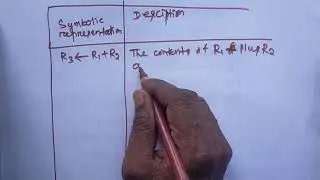 Symbolic
representation
Desciption
R3 ← R1 + R2
The contents of R1 Plus R2
a